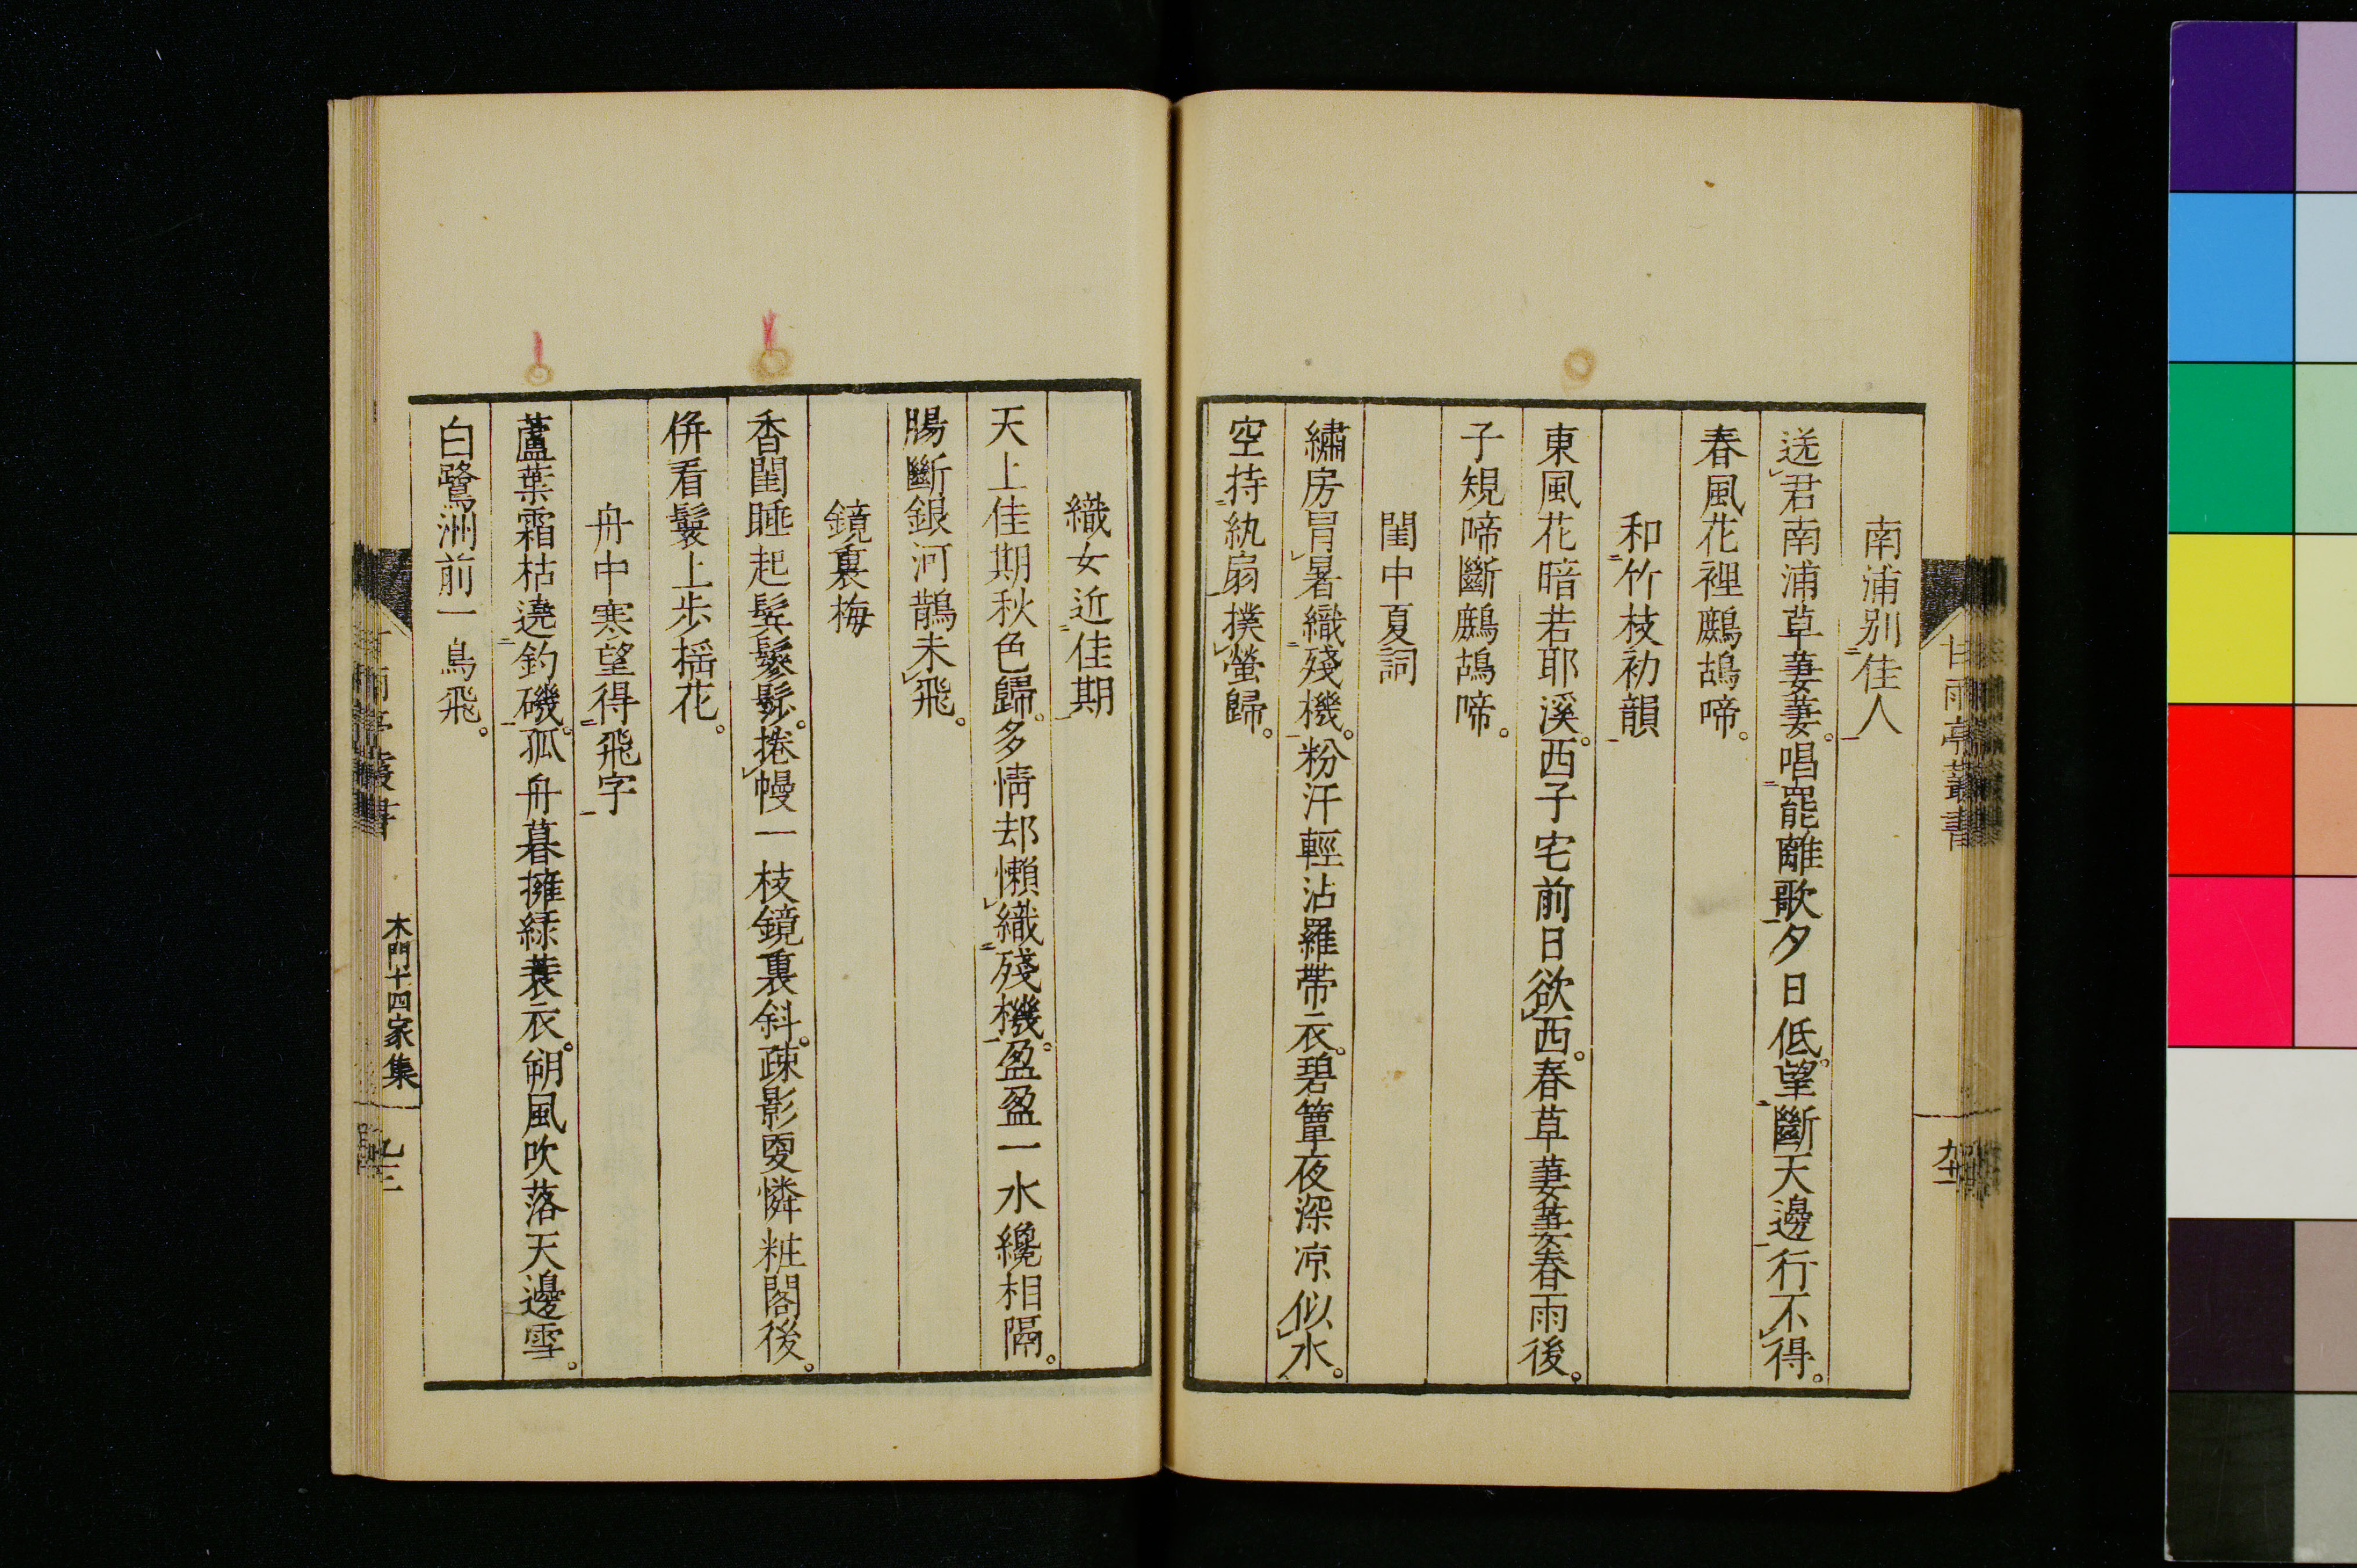 甘雨亭叢書
南浦别佳人
送君南浦草萋萋。唱罷離歌夕日低。望斷天邊行不得。
春風花裡鷓鴣啼。
和竹枝初韻
東風花暗若耶溪。西子宅前日欲西。春草萋萋春雨後。
子規啼斷鷓鴣啼。
閨中夏詞
繡房冐暑織殘機。粉汗輕沾羅帶衣。碧簟夜深凉似水。
空持紈扇撲螢歸。
織女近佳期
天上佳期秋色歸。多情却懶織殘機。盈盈一水纔相隔。
腸斷銀河鵲未飛。
鏡裏梅
香閨睡起鬂鬖髿。捲幔一枝鏡裏斜。疎影更憐粧閣後。
併看鬟上步揺花。
舟中寒望得飛字
蘆葉霜枯遶釣磯。孤舟暮擁綠蓑衣。朔風吹落天邊雪。
白鷺洲前一鳥飛。
雨亭叢書
木門十四家集